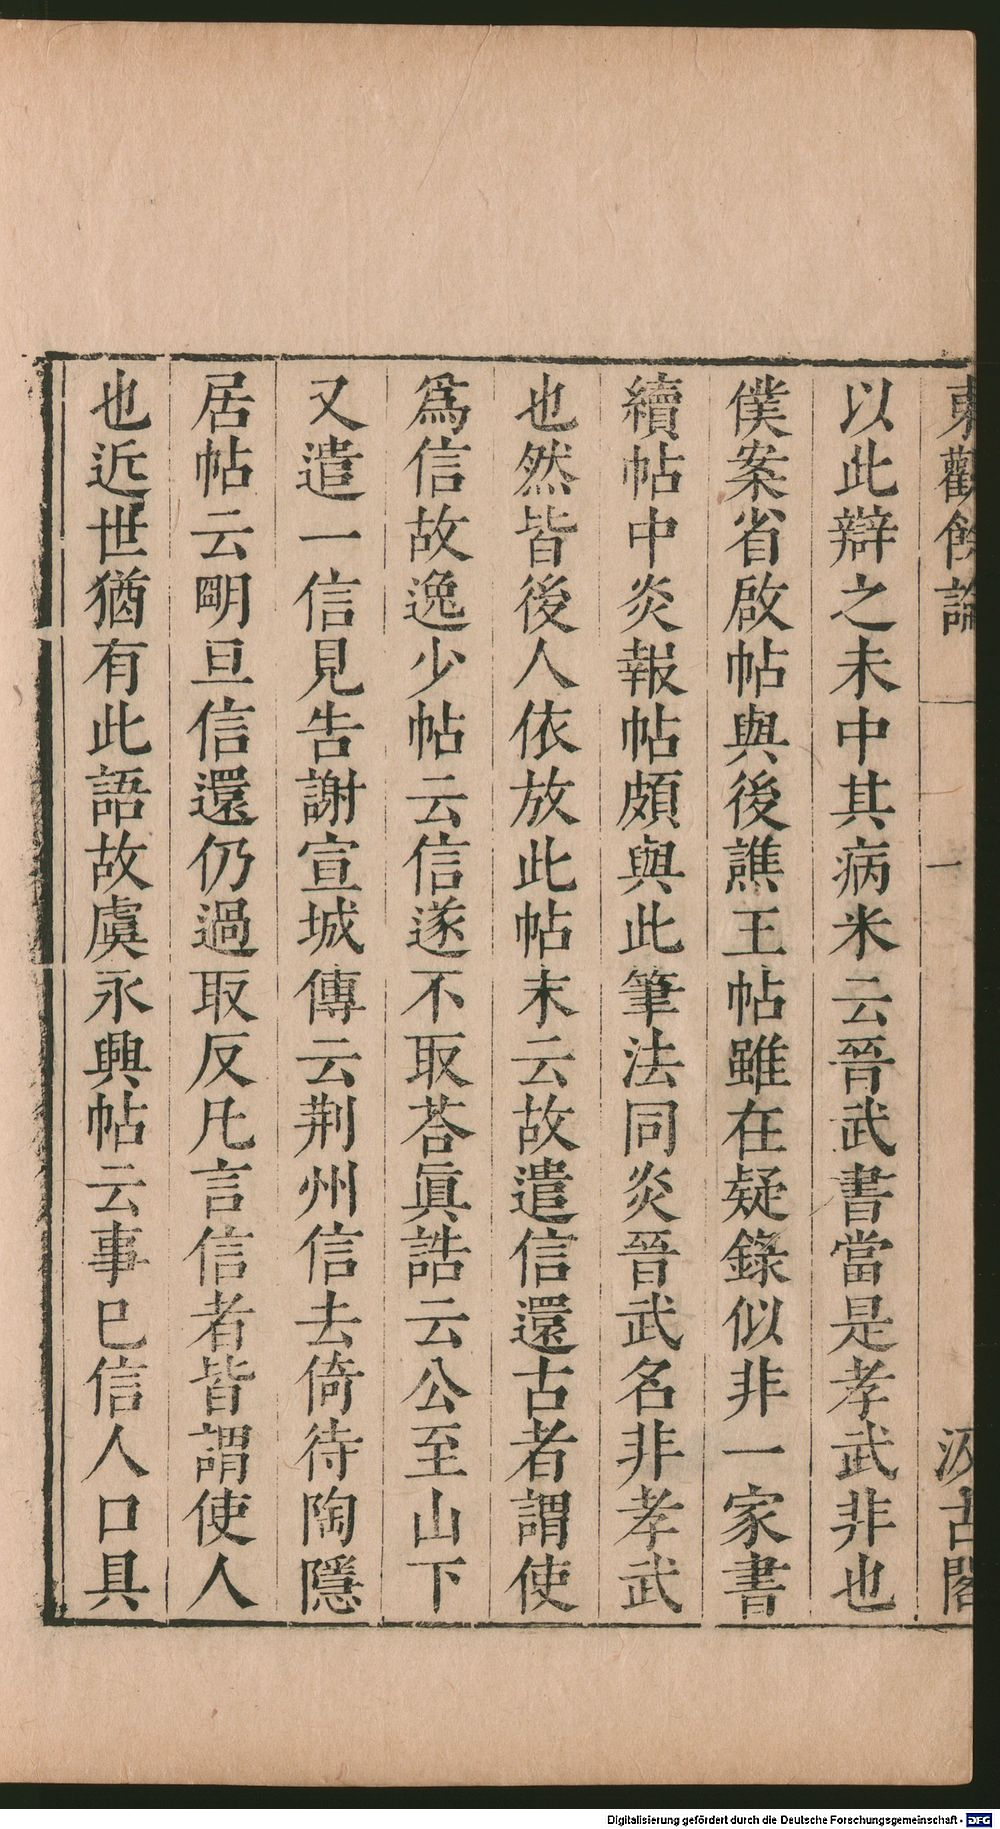 東觀餘論 一 汲古閣
以此辯之未中其病米云晉武書當是孝武非也
僕案省啟帖與後譙王帖雖在疑錄似非一家書
續帖中炎報帖頗與此筆法同炎晉武名非孝武
也然皆後人依放此帖末云故遣信還古者謂使
爲信故逸少帖云信遂不取荅眞誥云公至山下
又遣一信見告謝宣城傳云荆州信去倚待陶隱
居帖云明旦信還仍過取反凡言信者皆謂使人
也近世猶有此語故虞永興帖云事已信人口具
Digitalisierung gefördert durch die Deutsche Forschungsgemeinschaft - DFG